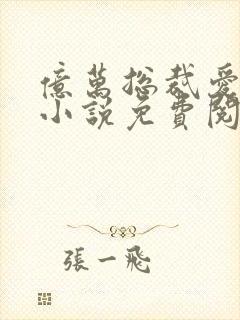 億萬總裁愛
小說免費閱
張一飛